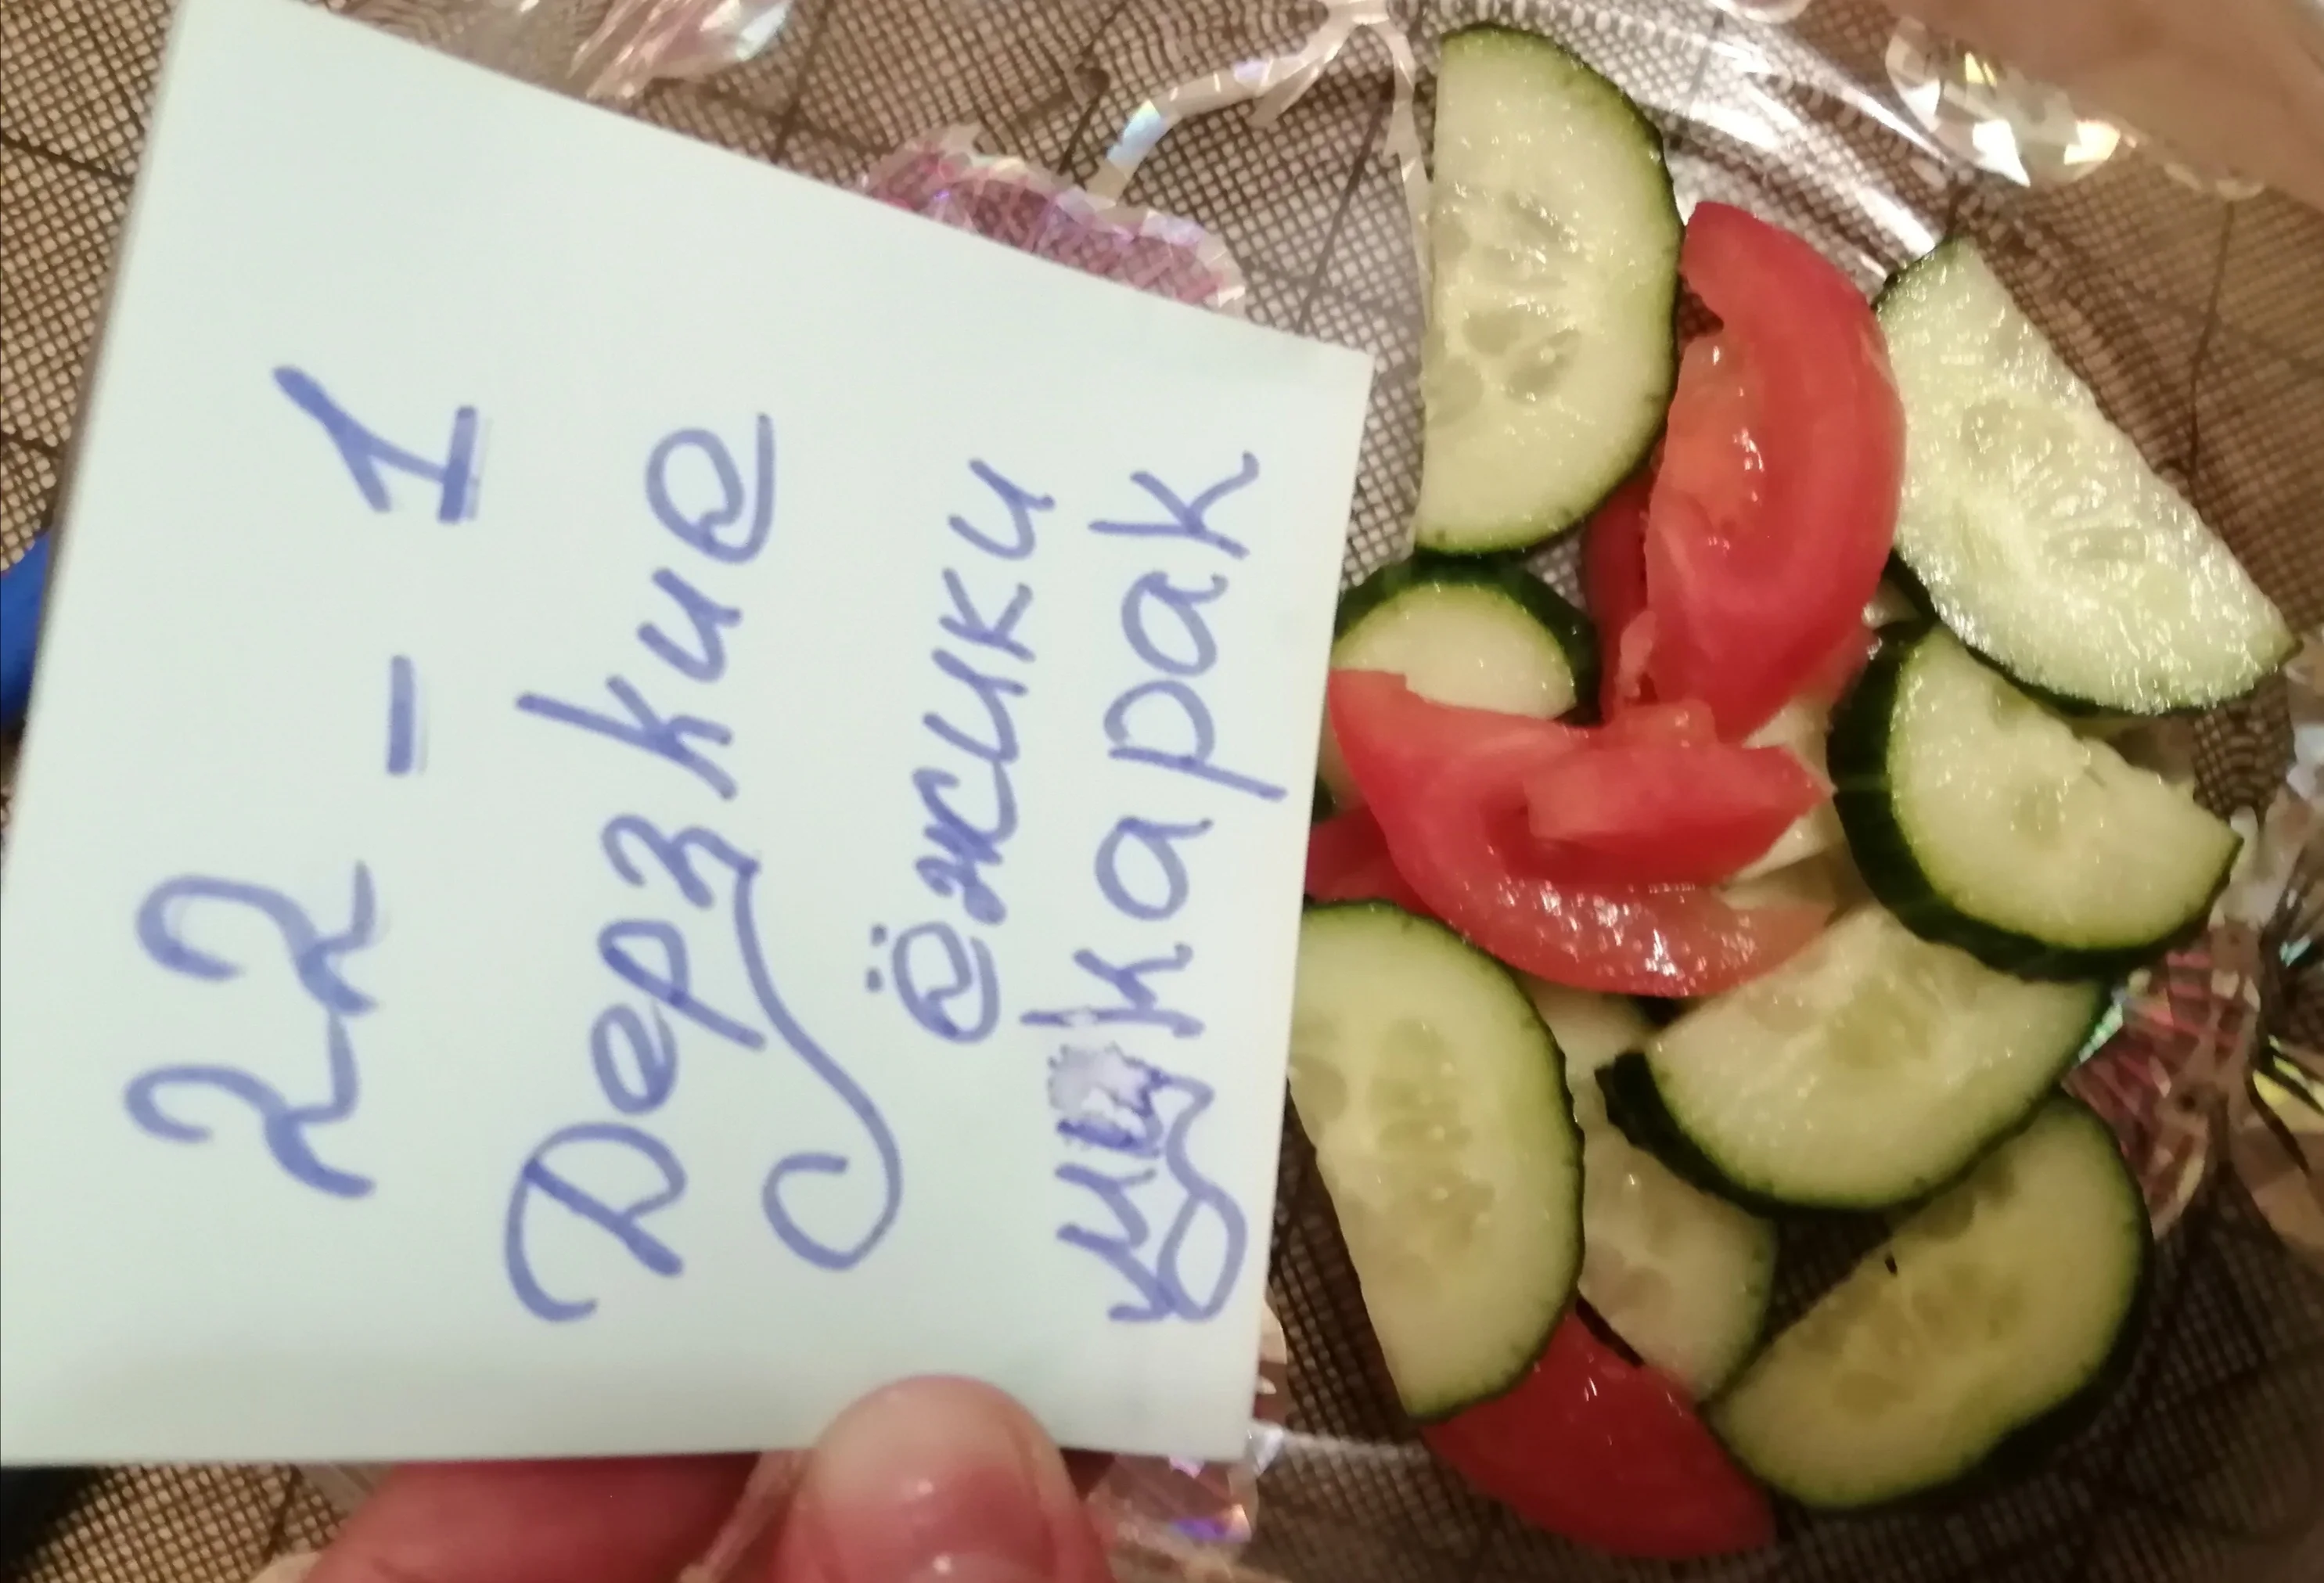 22 - 1
Дерзкие
ёжики
карак